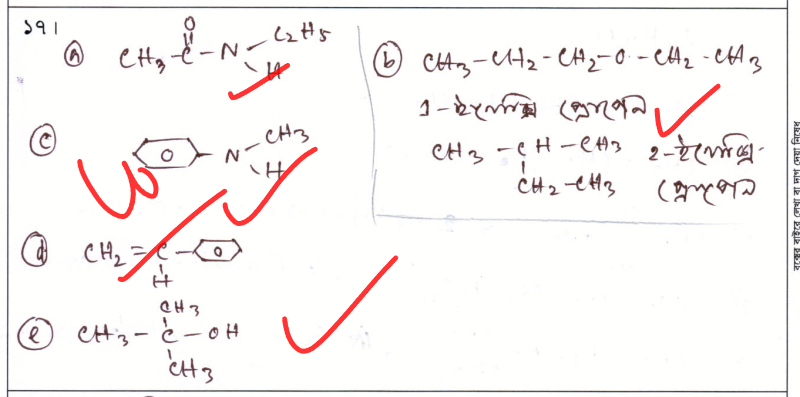 ১৭।
ⓐ CH₃-C(=O)-N(C₂H₅)(H)
ⓑ CH₃-CH₂-CH₂-O-CH₂-CH₃
1-ইথোক্সি প্রোপেন
CH₃-CH-CH₃ ২-ইথোক্সি-
CH₂-CH₃ প্রোপেন
ⓒ [O]-N(CH₃)(H)
ⓓ CH₂=C(H)-[O]
ⓔ CH₃-C(CH₃)(CH₃)-OH
বক্সের বাইরে লেখা বা দাগ দেয়া নিষেধ